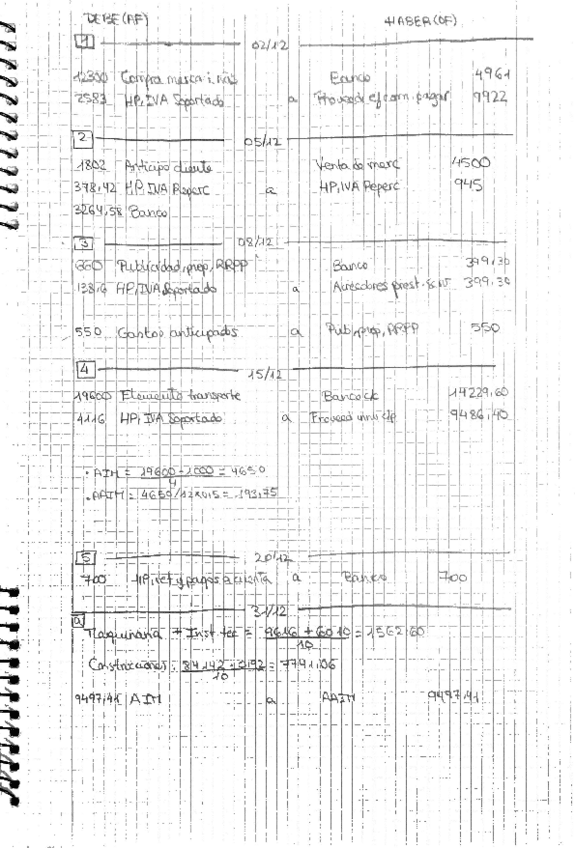 DEBE (AF) HABER (OF)
1 02/12
12300 Compra mercancías Banco 4961
2583 HP, IVA Soportado a Proveed ef com. pagar 9922
2 05/12
1802 Anticipo cliente Venta de merc 4500
378,42 HP, IVA Reperc a HP, IVA Reperc 945
3264,58 Banco
3 08/12
660 Publicidad, prop, RRPP Banco 399,30
138,6 HP, IVA Soportado a Acreedores prest. serv 399,30
550 Gastos anticipados a Pub, prop, RRPP 550
4 15/12
19600 Elemento transporte Banco c/c 14229,60
4116 HP, IVA Soportado a Proveed inm c/p 9486,40
· AIM = 19600 - 1000 = 4650
4
· AAIM = 4650/12 x 0,5 = 193,75
5 20/12
700 HP, ret y pagos a cuenta a Banco 700
a 31/12
Maquinaria + Inst tec = 9616 + 6010 = 1562,60
10
Construcciones: = 7791,06
10
9497,41 AIM a AAIM 9497,41